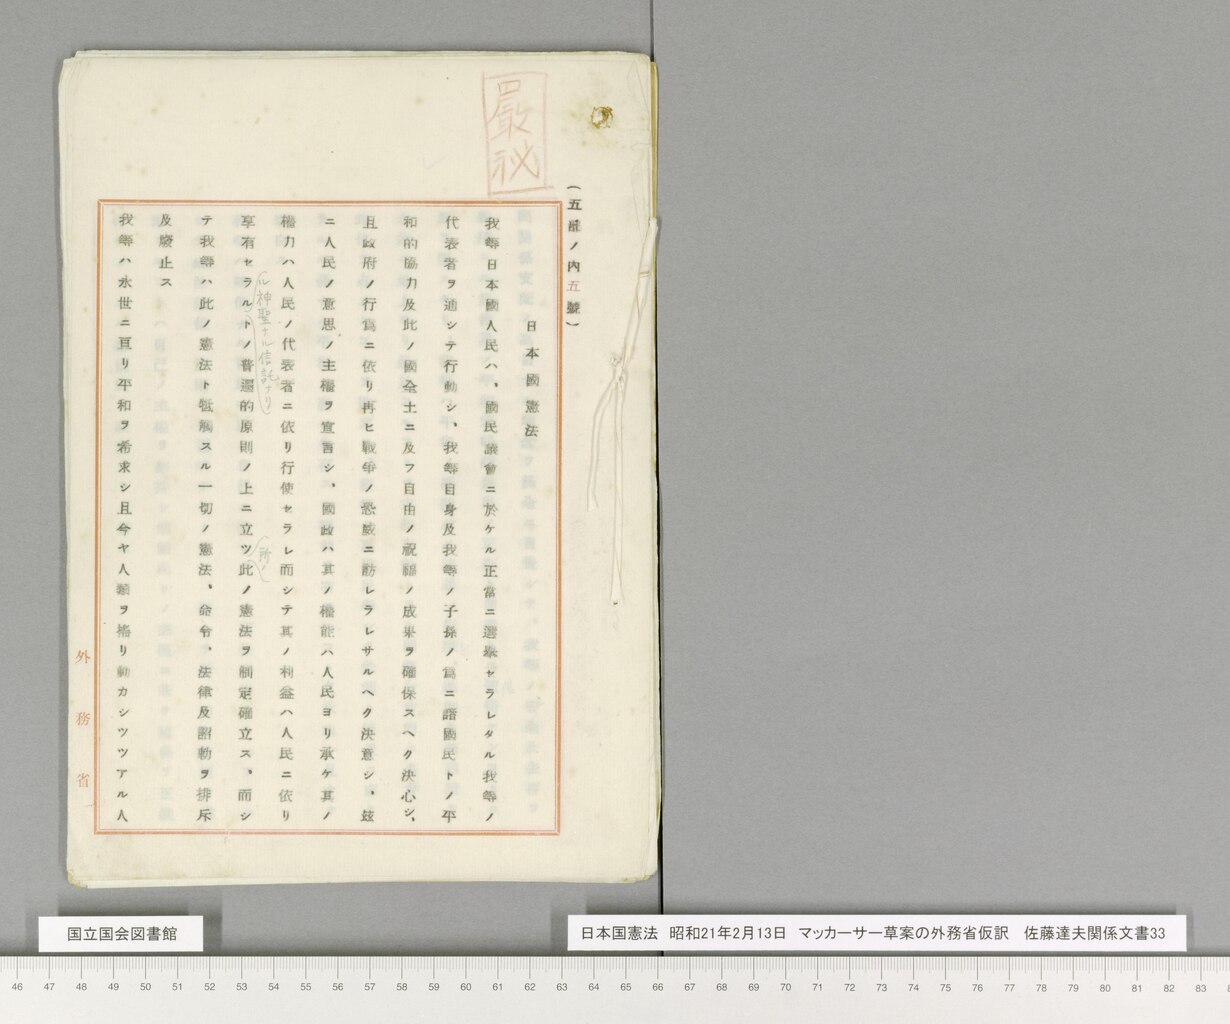 嚴祕
(五部ノ内五號)
日本國憲法
我等日本國人民ハ、國民議會ニ於ケル正當ニ選擧セラレタル我等ノ
代表者ヲ通シテ行動シ、我等自身及我等ノ子孫ノ爲ニ諸國民トノ平
和的協力及此ノ國全土ニ及フ自由ノ祝福ノ成果ヲ確保スヘク決心シ、
且政府ノ行爲ニ依リ再ヒ戰爭ノ恐威ニ訪レラレサルヘク決意シ、玆
ニ人民ノ意思ノ主權ヲ宣言シ、國政ハ其ノ權能ハ人民ヨリ承ケ其ノ
權力ハ人民ノ代表者ニ依リ行使セラレ而シテ其ノ利益ハ人民ニ依リ
ル神聖ナル信託ナリ
所ノ
享有セラルトノ普遍的原則ノ上ニ立ツ此ノ憲法ヲ制定確立ス、而シ
テ我等ハ此ノ憲法ト牴觸スル一切ノ憲法、命令、法律及詔勅ヲ排斥
及廢止ス
我等ハ永世ニ亘リ平和ヲ希求シ且今ヤ人類ヲ搖リ動カシツツアル人
外務省
国立国会図書館
日本国憲法 昭和21年2月13日 マッカーサー草案の外務省仮訳 佐藤達夫関係文書33
46 47 48 49 50 51 52 53 54 55 56 57 58 59 60 61 62 63 64 65 66 67 68 69 70 71 72 73 74 75 76 77 78 79 80 81 82 83